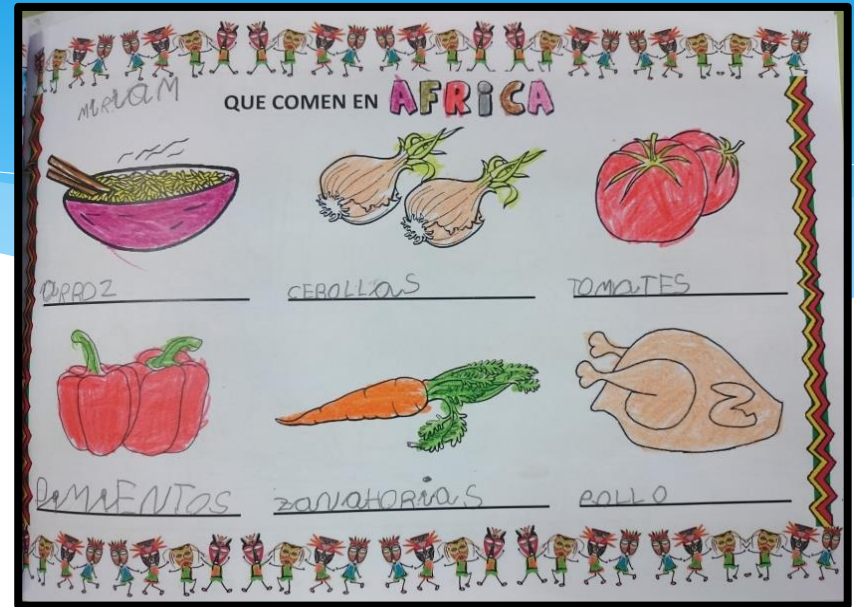 MIRIAM
QUE COMEN EN AFRICA
ARROZ
CEBOLLAS
TOMATES
PIMIENTOS
ZANAHORIAS
POLLO